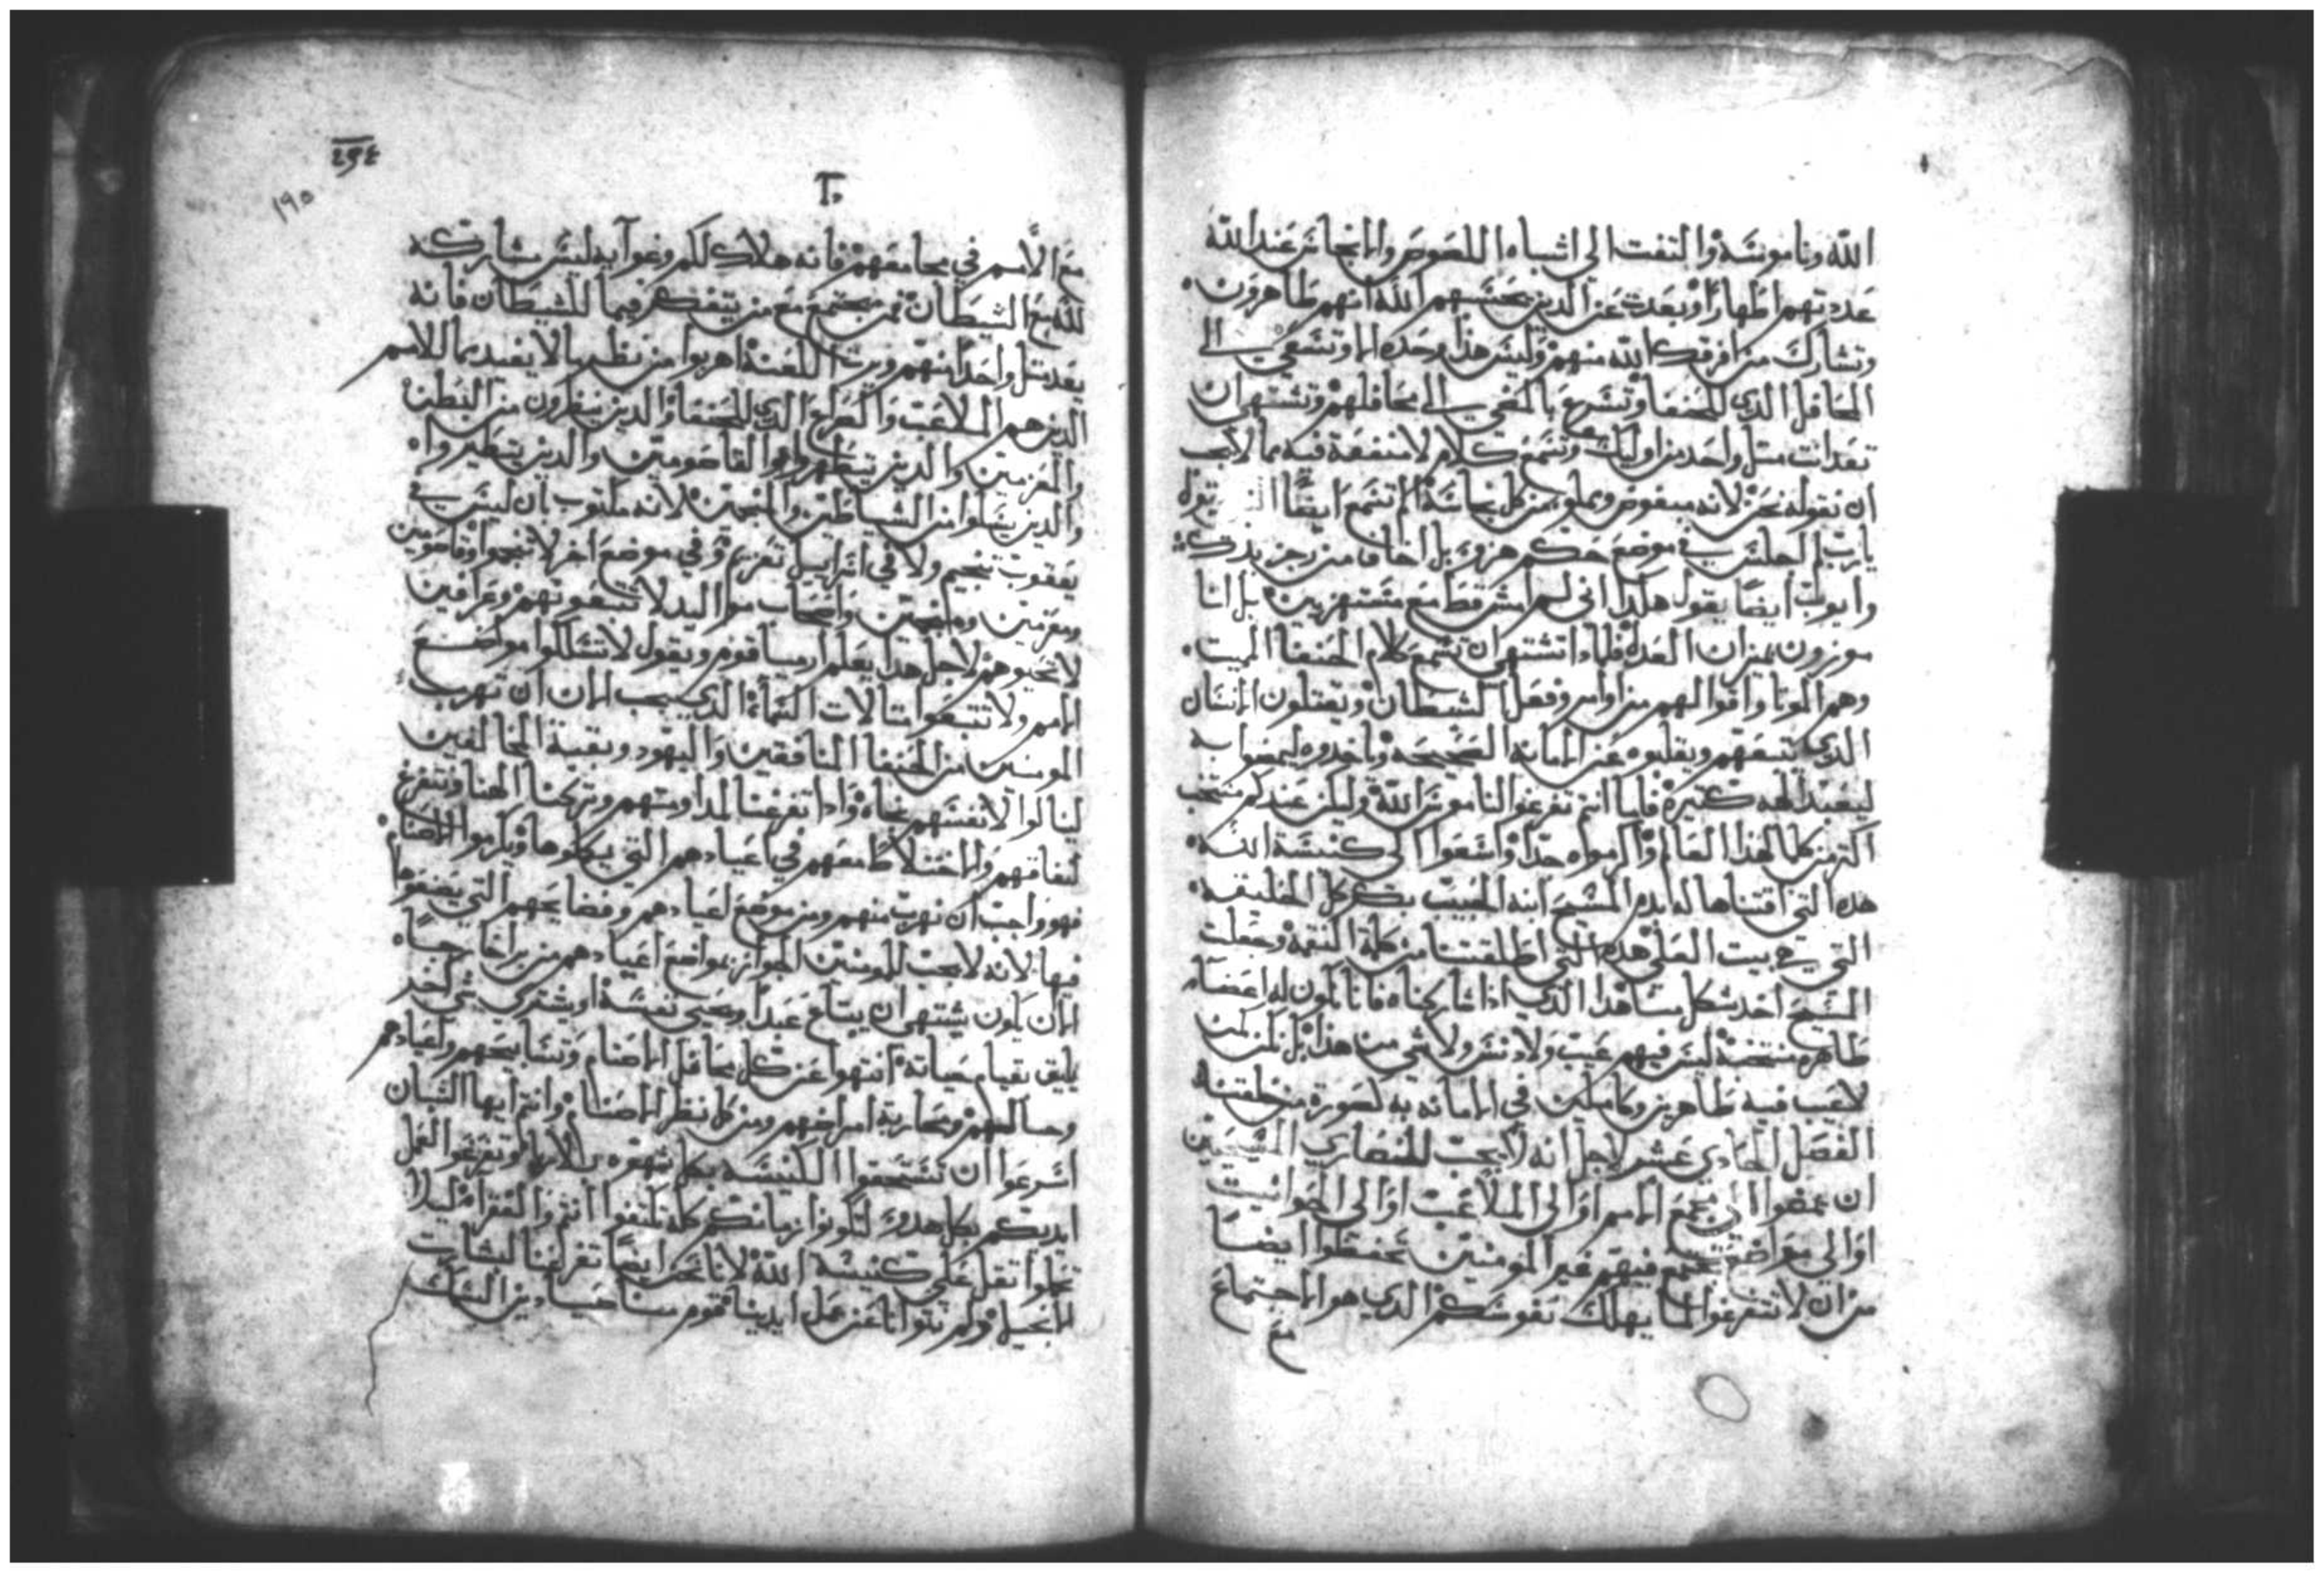 الله وناموسه والتفت الي اشباه اللصوص والانجاس عند الله
عددتهم اطهارا وبعدت عن الدين يحسبهم الله انهم طاهرون
وتشارك من افرقك الله منهم وليس هذا وحده الا وتسعي الي
المحافل الذي للحنفا وتسرع بالمضي الي محافلهم وتشتهي ان
تعد انت مثل واحد من اوليك وتسمع كلام لا منفعة فيه مما لا يجب
ان نقوله نحن لانه مبغوض ومملو من كل نجاسة الم تسمع ايضا يقول
يارب لم اجلس في موضع حكم هزو بل اخاف من رجز يدك
وايوب ايضا يقول هكدا اني لم امشي قط مع مستهزين بل انا
موزون بميزان العدل فلماذا تشتهي ان تسمع كلام الحنفا الميت
وهم الموتا وافوالهم من اوامر وفعل الشيطان ويقتلون الانسان
الذي يتبعهم ويقلبوه عن الامانه الصحيحه وياخدوه ليمضوا به
ليعبد الهه كتيرة فاما انتم تفرغوا لناموس الله وليكن عندكم منتخب
اكتر من كلما لهذا العالم واكرموه جدا واسعوا الي كنيسة الله
هده التي اقتناها له بدم المسيح ابنه الحبيب بكر كل الخليقه
التي هي بيت العلي هده التي اطلقتنا من كلة النقمة وجعلت
المسيح اخد شكل مسا هدا الدي ادا شاركناه فانا نكون له اعضا
طاهره منتخبة ليس فيهم عيب ولا دنس ولا شي من هذا بل نكن كمن
لا عيب فيه طاهرين وكاملين في الامانه به لصورة من خلقنا
الفصل الحادي عشر لاجل انه لا يجب للنصاري المسيحيين
ان يمضوا الي مجمع الامم او الي الملاعب او الي الحوانيت
او الي مواضع تجتمع فيهم غير المومنين تحفظوا ايضا
من ان لا تتفرغوا لما يهلك نفوسكم الدي هو الاجتماع
مع
٢٩٤
١٩٥
مع الامم في مجامعهم فانه هلاك لكم وغوايه ليس مشاركه
لله مع الشيطان فمن يجتمع مع من يتفكر فيما للشيطان فانه
يعد مثل واحدا منهم ويرت اللعنة اهربوا من نظر ما لا يفيد مما للامم
الدين هم الملاعب والصراع الذي للحنفا والدين ينظرون من البطن
والمعزمين والدين يتطهروا والقاصومين والدين يتطيروا
والدين يسلوا من الشياطين والمنجمين لانه مكتوب بان ليس في
يعقوب تنجيم ولا في اسراييل تعزيم وفي موضع اخر لا تنجموا وقاصومين
ومعزمين ومنجمين واصحاب مواليد لا تتبعوتهم وعرافين
لا تحيوهم لاجل هدا يعلم ارميا قومه ويقول لا تسلكوا مواضع
الامم ولا تتبعوا متالات السماء الذي يجب الان ان تهرب
المومنين من الحنفا المنافقين واليهود وبقية المخالفين
لينالوا لانفسهم نجاة وادا تفرغنا لمداومتهم وتركنا الهنا ونتفرغ
لنفاقهم والاختلاط معهم في اعيادهم التي يعملوها ويكرموا الاصنام
فهو واجب ان نهرب منهم ومن موضع اعيادهم وفضايحهم التي يصنعوها
فيها لانه لا يجب للمومنين الجواز بمواضع اعيادهم من برا خارجا
الا ان يكون يشتهي ان يبتاع عبدا ويحيي نفسه او يشتري شي اخر
يليق بقيام حياته انتهوا عن كل محافل الاصنام وتسابيحهم واعيادهم
ومسالمتهم ومحاربة امراضهم ومن كل نظر الاصنام وانتم ايها الشبان
اسرعوا ان تستحقوا الكنيسه بكل شهوه بلا انهاك وتفرغوا لعمل
ايديكم بكل هدو لتكونوا زمانكم كله تكتفوا انتم والفقراء ليلا
تجعلوا تقل علي كنيسة الله لانا نحن ايضا تفرغنا لبشارت
الانجيل ولم نتوانا عن عمل ايدينا فقوم منا صيادين السمك